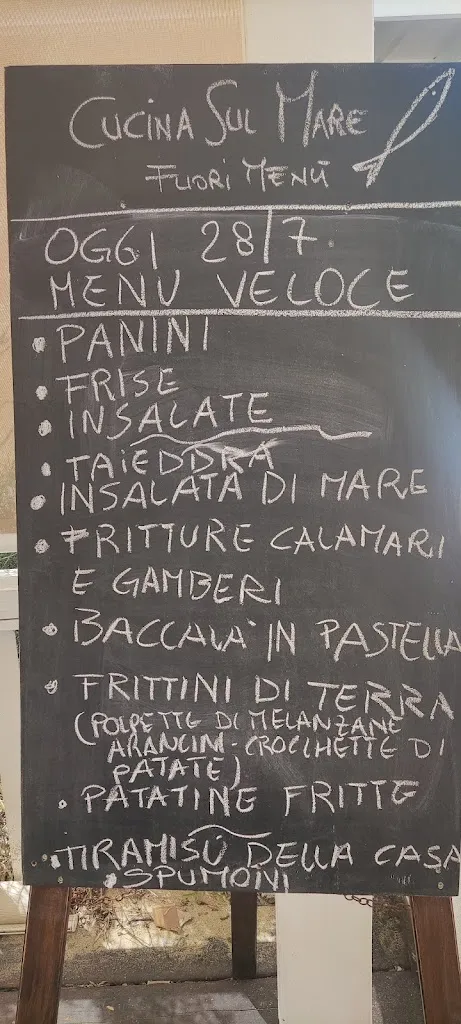 CUCINA SUL MARE
FUORI MENÙ
OGGI 28/7
MENU VELOCE
• PANINI
• FRISE
• INSALATE
• TAIEDDRA
• INSALATA DI MARE
• FRITTURE CALAMARI
E GAMBERI
• BACCALA' IN PASTELLA
• FRITTINI DI TERRA
(POLPETTE DI MELANZANE
ARANCINI - CROCCHETTE DI
PATATE)
• PATATINE FRITTE
• TIRAMISÙ DELLA CASA
• SPUMONI